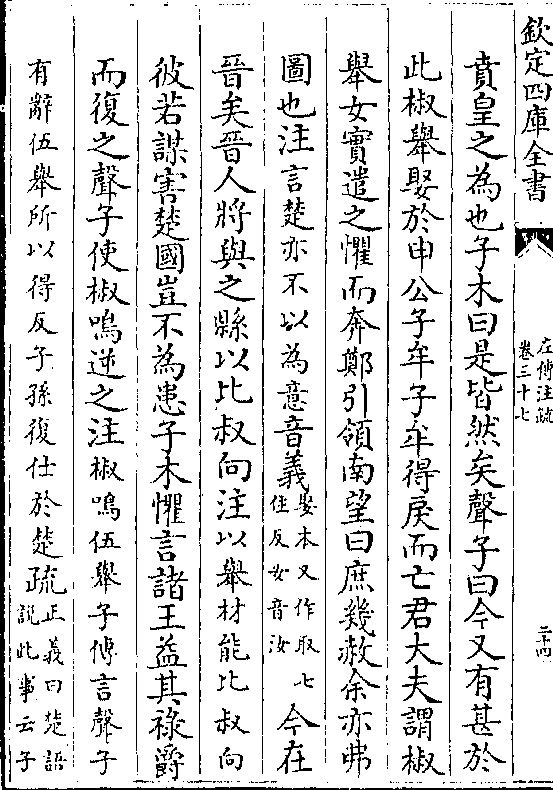 欽定四庫全書
左傳注疏
卷三十七
二十四
賁皇之為也子木曰是皆然矣聲子曰今又有甚於
此椒舉娶於申公子牟子牟得戾而亡君大夫謂椒
舉女實遣之懼而奔鄭引領南望曰庶幾赦余亦弗
圖也注言楚亦不以為意音義娶本又作取七住反女音汝今在
晉矣晉人將與之縣以比叔向注以舉材能比叔向
彼若謀害楚國豈不為患子木懼言諸王益其祿爵
而復之聲子使椒鳴逆之注椒鳴伍舉子傳言聲子
有辭伍舉所以得反子孫復仕於楚疏正義曰楚語說此事云子